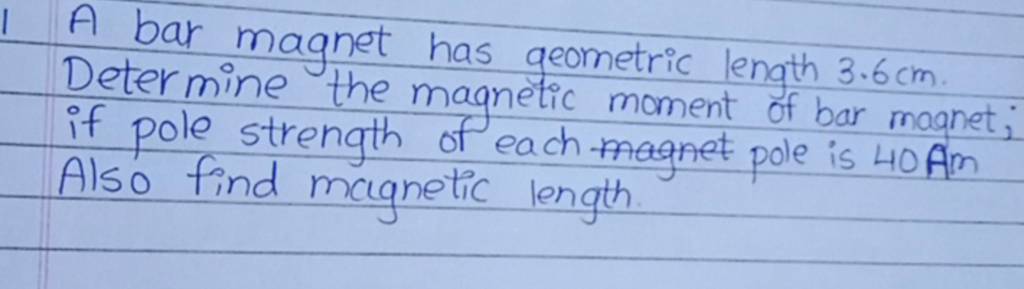 1 A bar magnet has geometric length 3.6cm.
Determine the magnetic moment of bar magnet;
if pole strength of each magnet pole is 40 Am
Also find magnetic length.